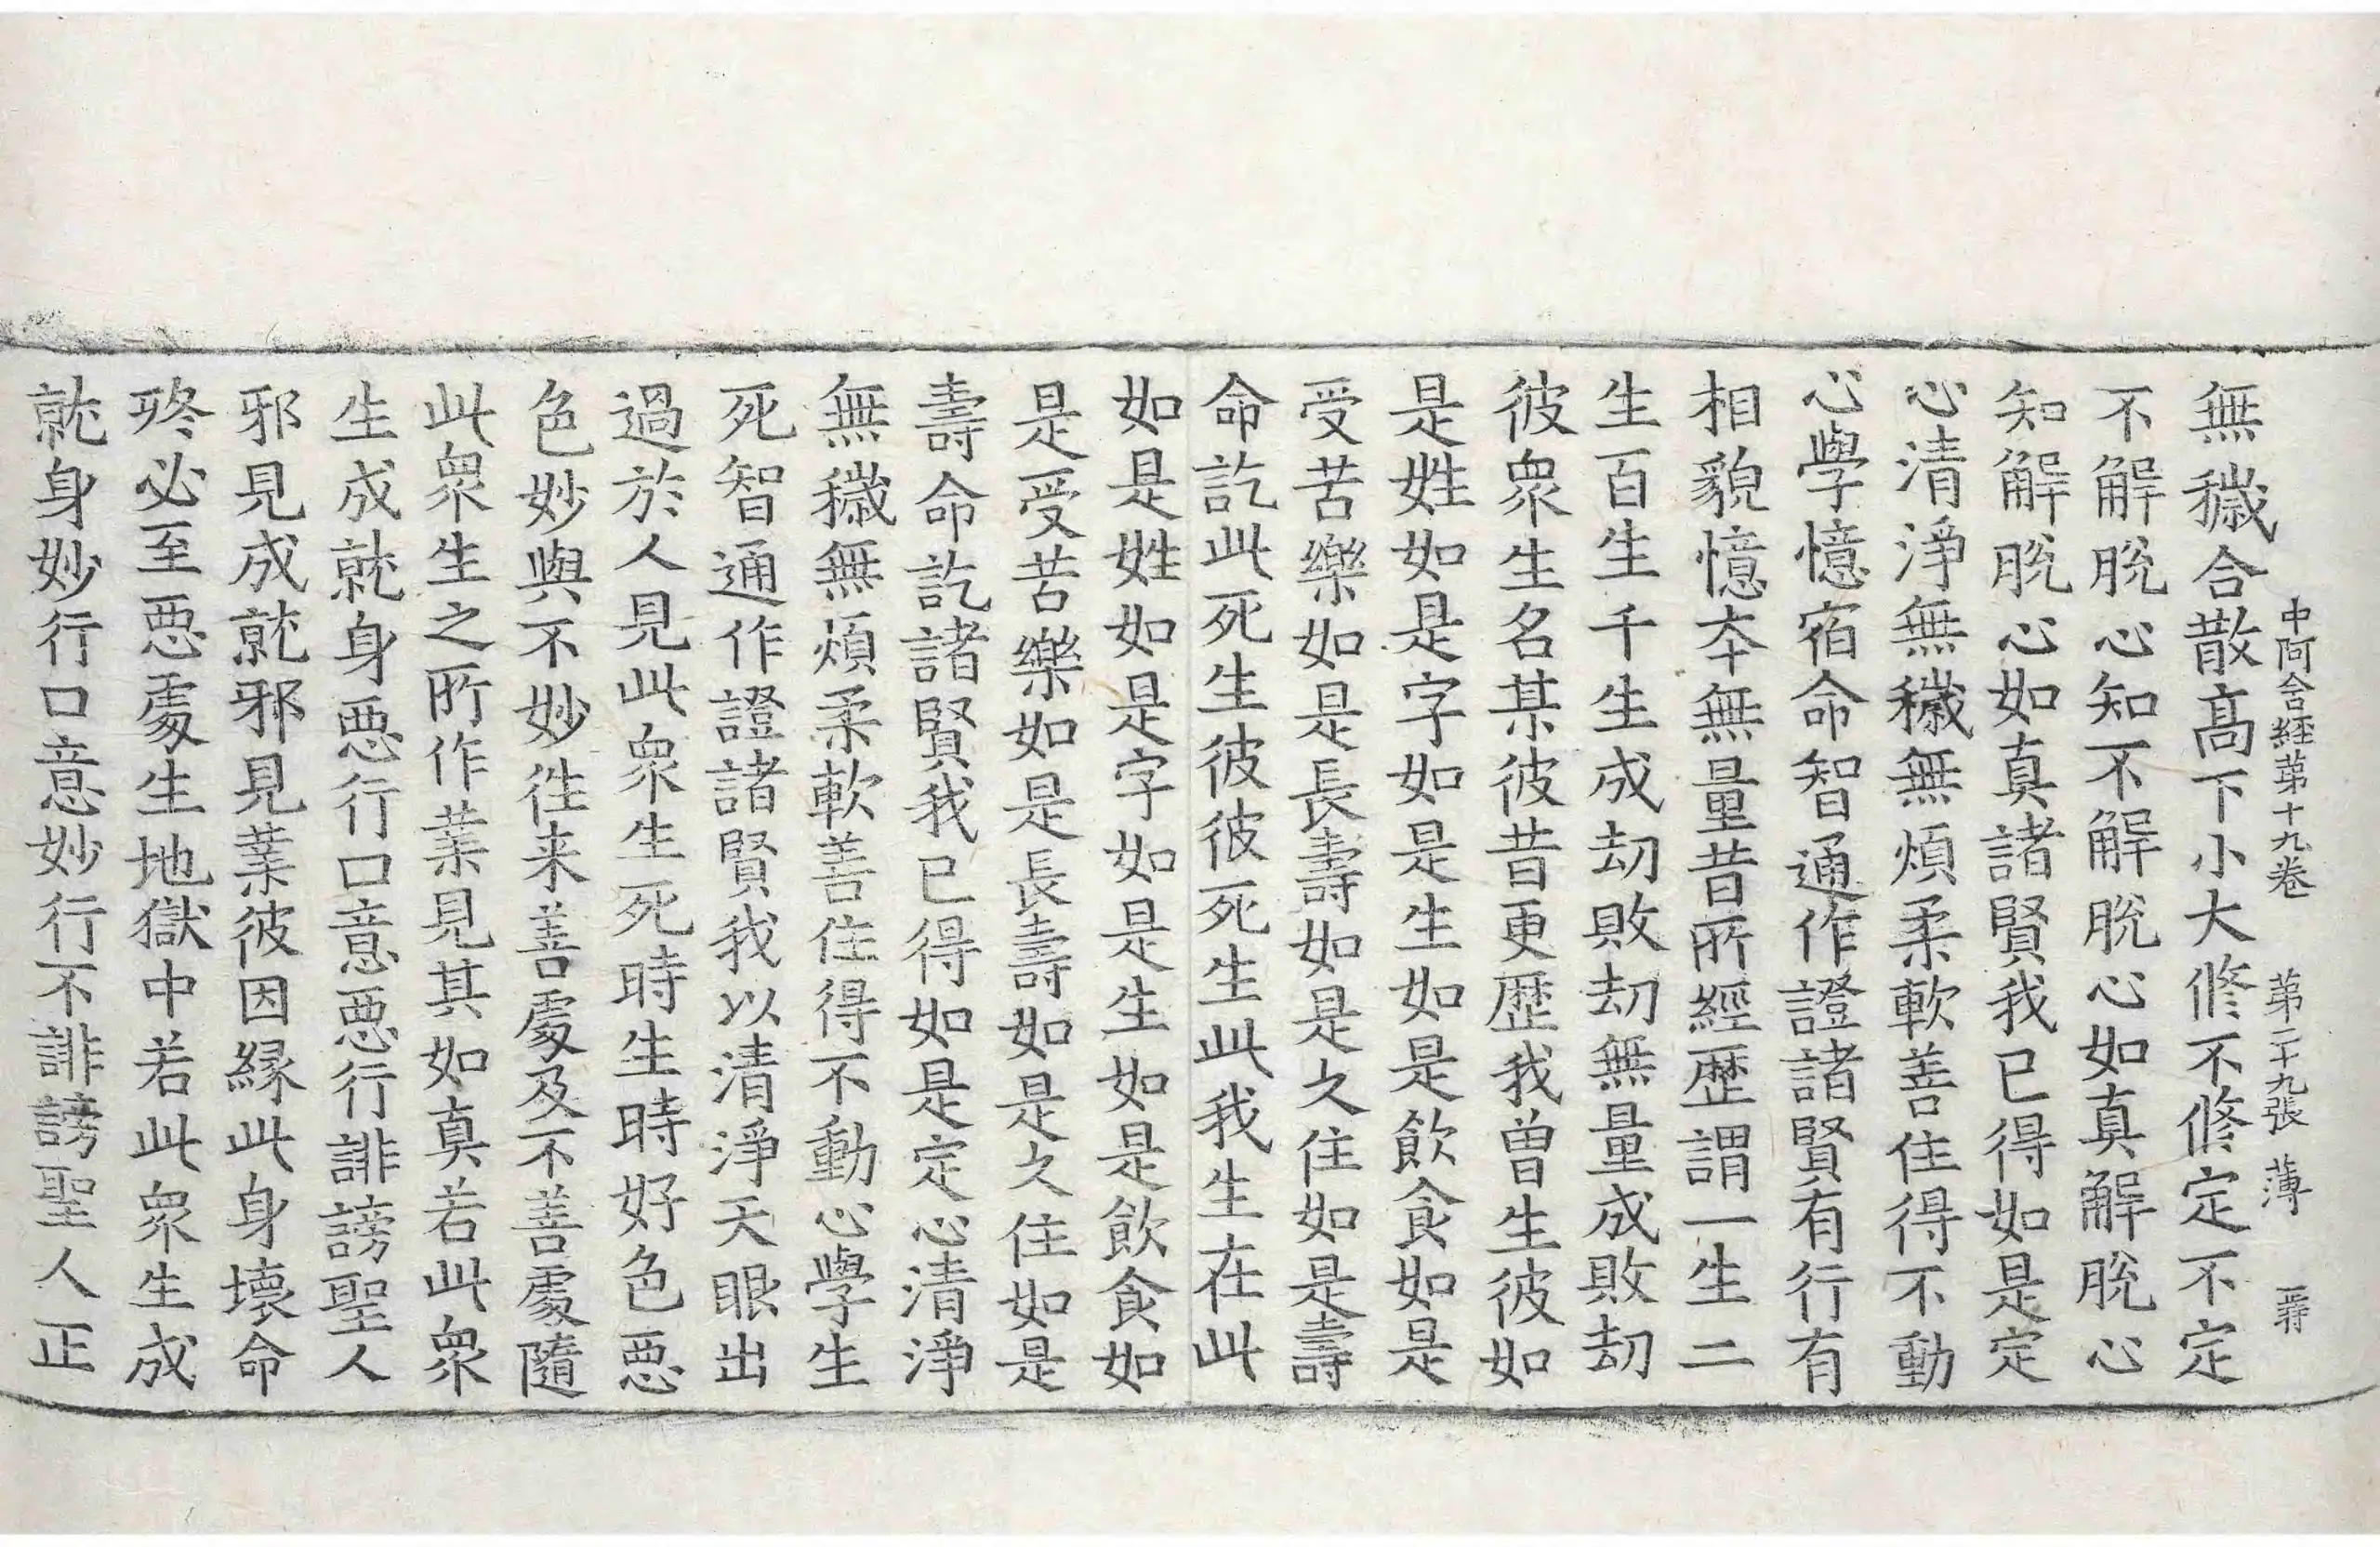 中阿含経苐十九卷 苐二十九張 薄
無穢合散髙下小大脩不脩定不定
不解脫心知不解脫心如真解脫心
知解脫心如真諸賢我已得如是定
心清淨無穢無煩柔軟善住得不動
心學憶宿命智通作證諸賢有行有
相貌憶夲無量昔所經歷謂一生二
生百生千生成劫敗劫無量成敗劫
彼衆生名某彼昔更歷我曾生彼如
是姓如是字如是生如是飲食如是
受苦樂如是長壽如是久住如是壽
命訖此死生彼彼死生此我生在此
如是姓如是字如是生如是飲食如
是受苦樂如是長壽如是久住如是
壽命訖諸賢我已得如是定心清淨
無穢無煩柔軟善住得不動心學生
死智通作證諸賢我以清淨天眼出
過於人見此衆生死時生時好色惡
色妙與不妙徃来善處及不善處隨
此衆生之所作業見其如真若此衆
生成就身惡行口意惡行誹謗聖人
邪見成就邪見業彼因緣此身壞命
終必至惡處生地獄中若此衆生成
就身妙行口意妙行不誹謗聖人正